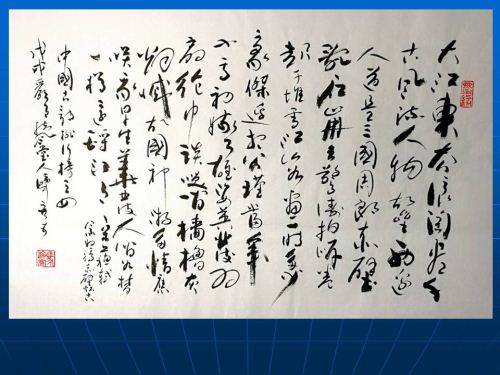 大江東去浪淘盡千
古風流人物故壘西邊
人道是三國周郎赤壁
亂石崩雲驚濤拍岸卷
起千堆雪江山如畫一時多少
豪傑遥想公瑾當年
小喬初嫁了雄姿英發羽
扇綸巾談笑間檣櫓灰
煙滅故國神游多情應
笑我早生華髮人間如夢
一樽還酹江月
中國
戊戌